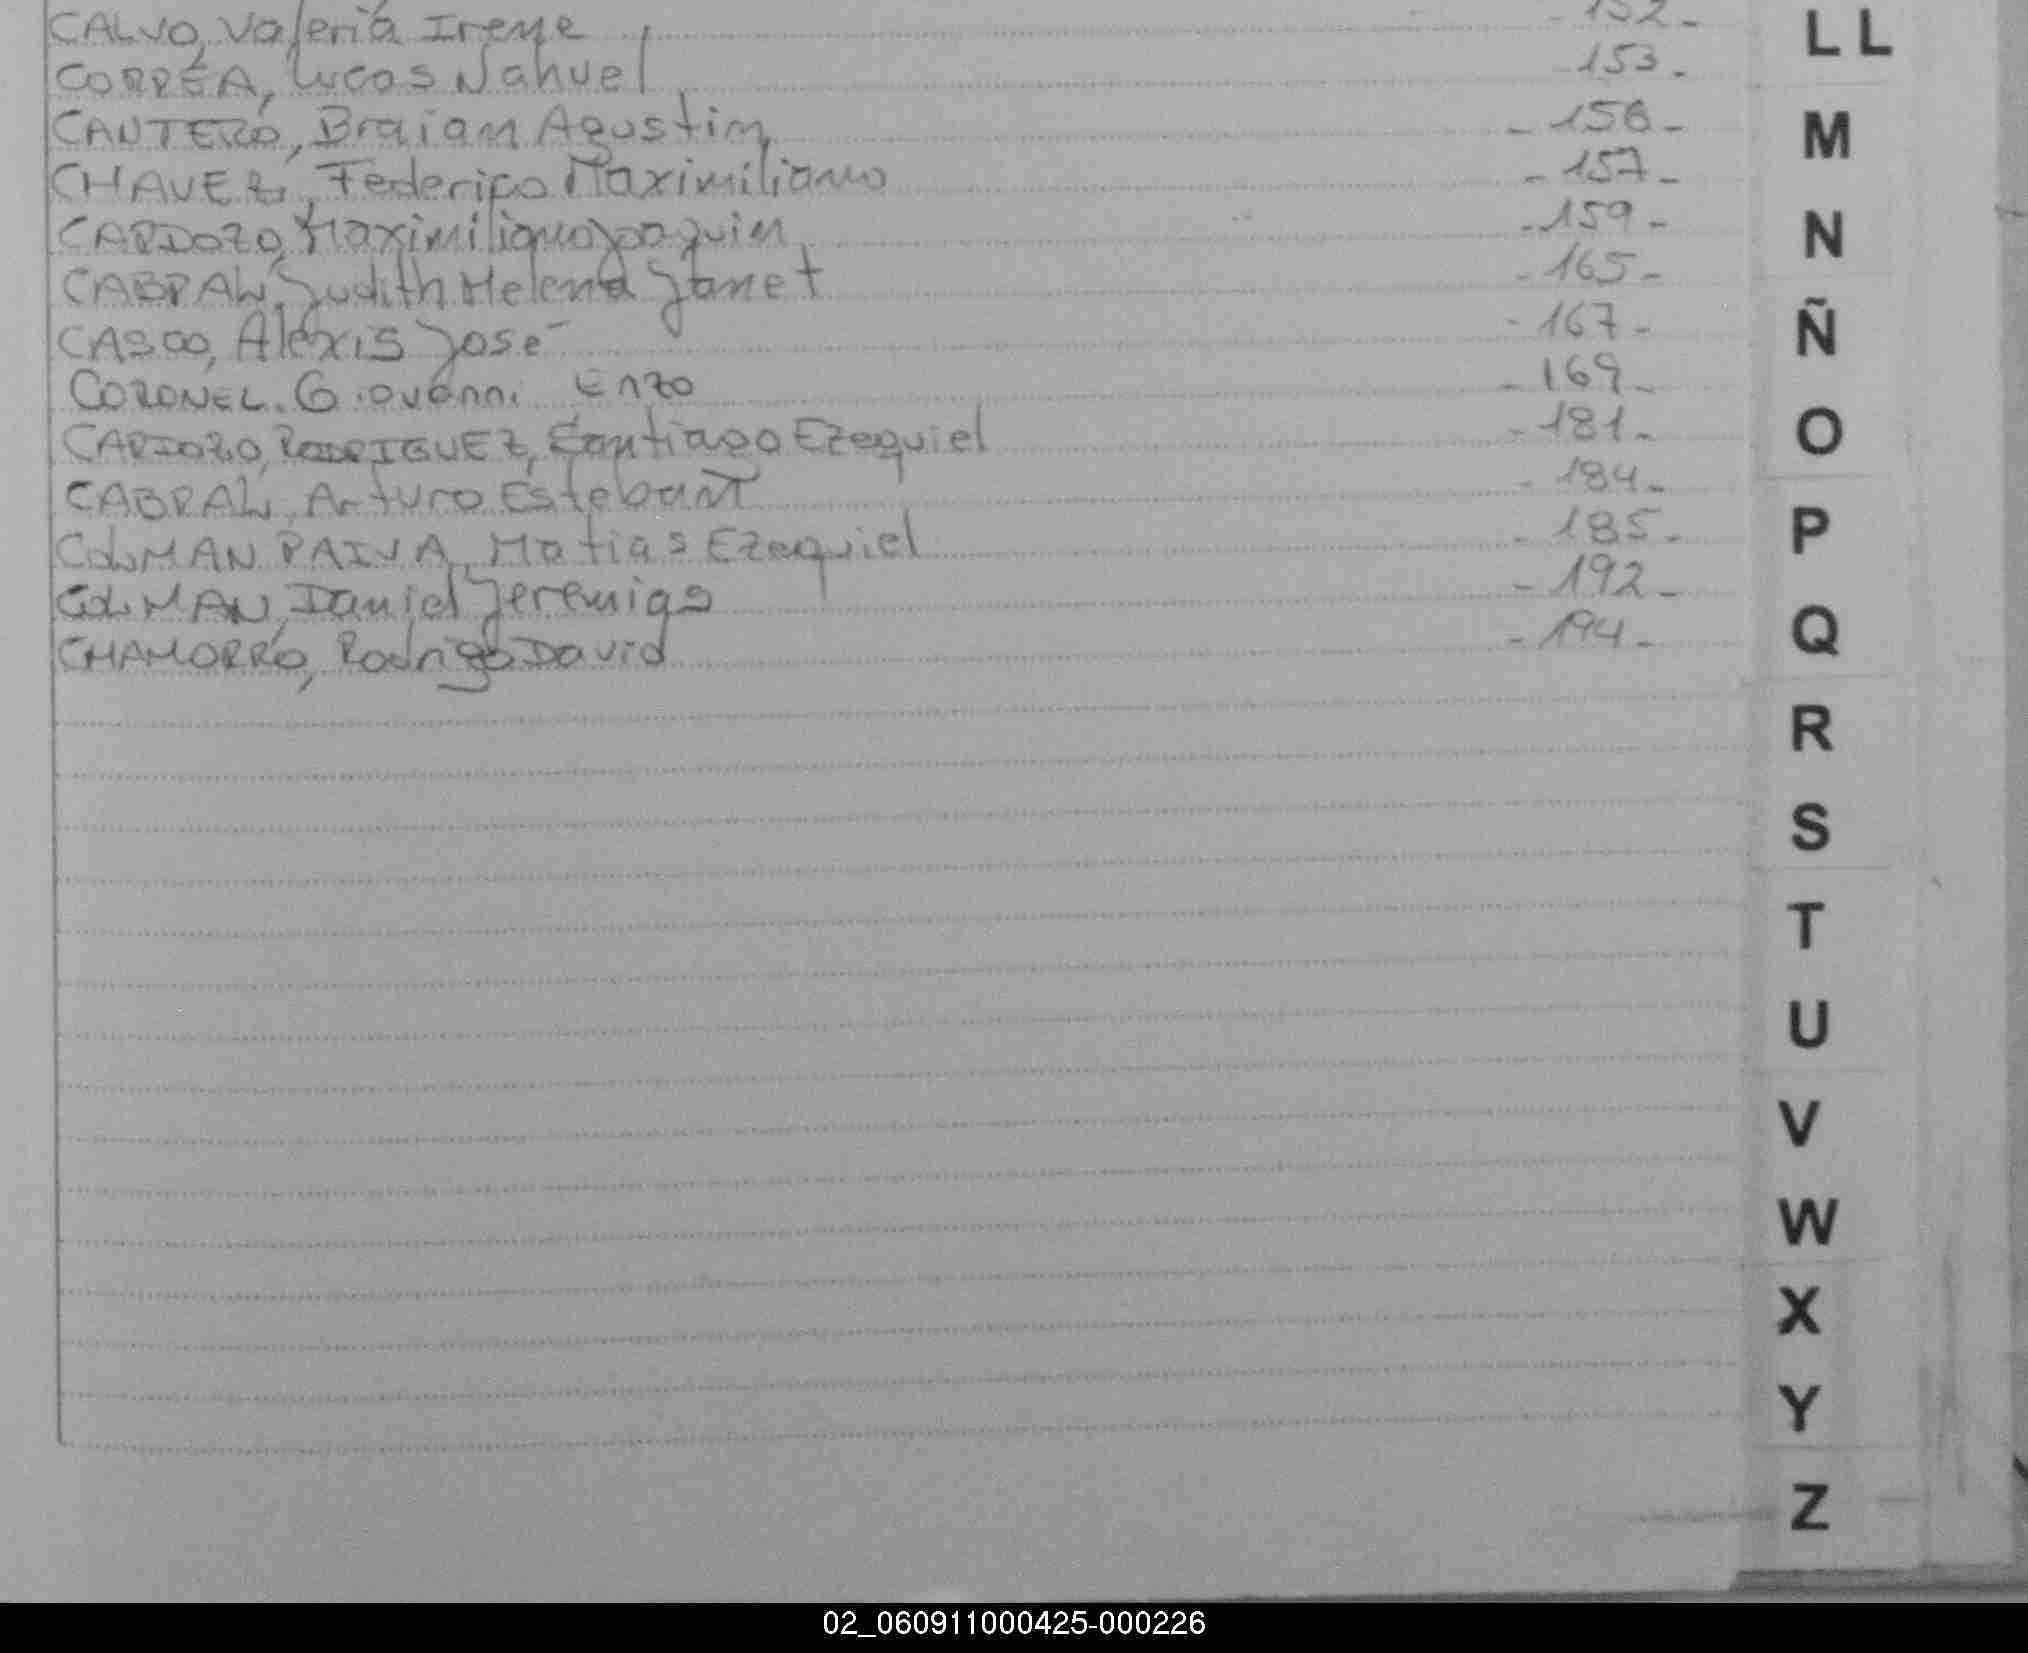 CALVO, Valeria Irene - 152 -
CORREA, Lucas Nahuel - 153 -
CANTERO, Braian Agustin - 156 -
CHAVEZ, Federico Maximiliano - 157 -
CARDOZO, Maximiliano Joaquin - 159 -
CABRAL, Judith Helena Janet - 165 -
CASCO, Alexis José - 167 -
CORONEL. Giovanni Enzo - 169 -
CARDOZO, RODRIGUEZ, Santiago Ezequiel - 181 -
CABRAL, Arturo Esteban - 184 -
COLMAN PAIVA, Matias Ezequiel - 185 -
COLMAN, Daniel Jeremias - 192 -
CHAMORRO, Rodrigo David - 194 -
LL
M
N
Ñ
O
P
Q
R
S
T
U
V
W
X
Y
Z
02_060911000425-000226